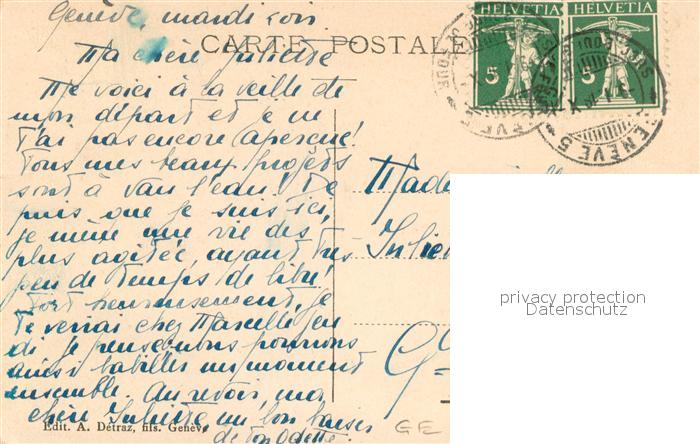 Genève, mardi soir
CARTE POSTALE
HELVETIA HELVETIA
5 5
GENÈVE 5
Ma chère Juliette
Me voici à la veille de
mon départ et je ne
t'ai pas encore aperçue!
Tous mes beaux projets
sont à vau l'eau! De
puis que je suis ici,
je mène une vie des
plus agitée, ayant très
peu de temps de libre!
Fort heureusement, je
te verrai chez Marcelle jeu
di je pense nous pourrons
ainsi babiller un moment
ensemble. Au revoir, ma
chère Juliette un bon baiser
de ton Odette.
Edit. A. Détraz, fils. Genève
Made
Juliet
G
GE
privacy protection
Datenschutz